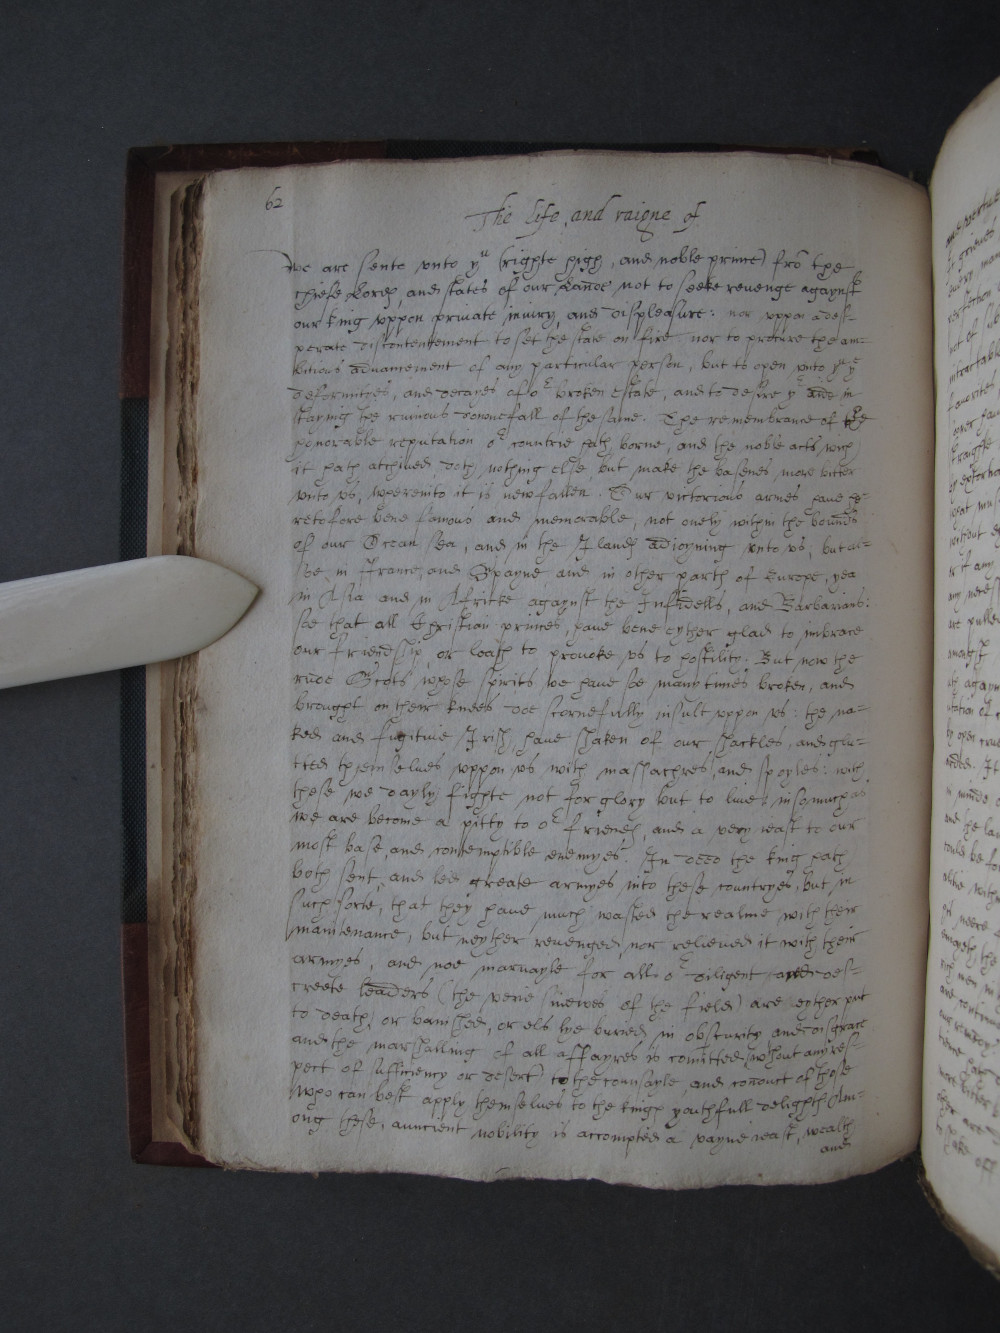 62
The life, and raigne of
We are sente vnto yu (righte high, and noble prince) frō the
chiefe Lordes, and states of our Lande not to seeke revenge agaynst
our king vppon private iniury, and displeasure: nor vppon a des-
perate discontentement to set the state on fire: nor to procure the am-
bitious aduancement of any particular person, but to open vnto yu ye
deformityes, and decayes of or broken estate, and to desire yr aide in
staying the ruinous downefall of the same. The remembrance of the
honorable reputation or countrie hath borne, and the noble acts wch
it hath atchived doth nothing else, but make the basenes more bitter
vnto vs, whereinto it is now fallen. Our victorious armes haue he-
retofore bene famous and memorable, not onely within the bounds
of our Ocean sea, and in the Ilands adioyning vnto vs, but al-
soe in France, and Spayne and in other parts of Europe, yea
in Asia and in Africke agaynst the Infidells, and Barbarians:
soe that all Christian princes, haue bene eyther glad to imbrace
our friendship, or loath to provoke vs to hostility. But now the
rude Scots whose spirits we haue soe many times broken, and
brought on their knees doe scornefully insult vppon vs: the na-
ked and fugitiue Irish, haue shaken of our shackles, and glu-
tted themselues vppon vs with massachres, and spoyles: with
these we dayly fighte not for glory but to liue: insomuch as
we are become a pitty to or friends, and a very ieast to our
most base, and contemptible enemyes. In deed the king hath
both sent, and led greate armyes into these countryes, but in
such sorte, that they haue much wasted the realme with their
maintenance, but neyther revenged, nor relieved it with their
armyes, and noe marvayle for all or diligent and des-
creete leaders (the verie sinewes of the field) are eyther put
to death, or banished, or els lye buried in obscurity and disgrace
and the marshalling of all affayres is comitted (without any res-
pect of sufficiency or desert) to the counsayle, and conduct of those
who can best apply themselues to the kings youthfull delights. Am-
ong these, auncient nobility is accompted a vayne ieast, wealth
and